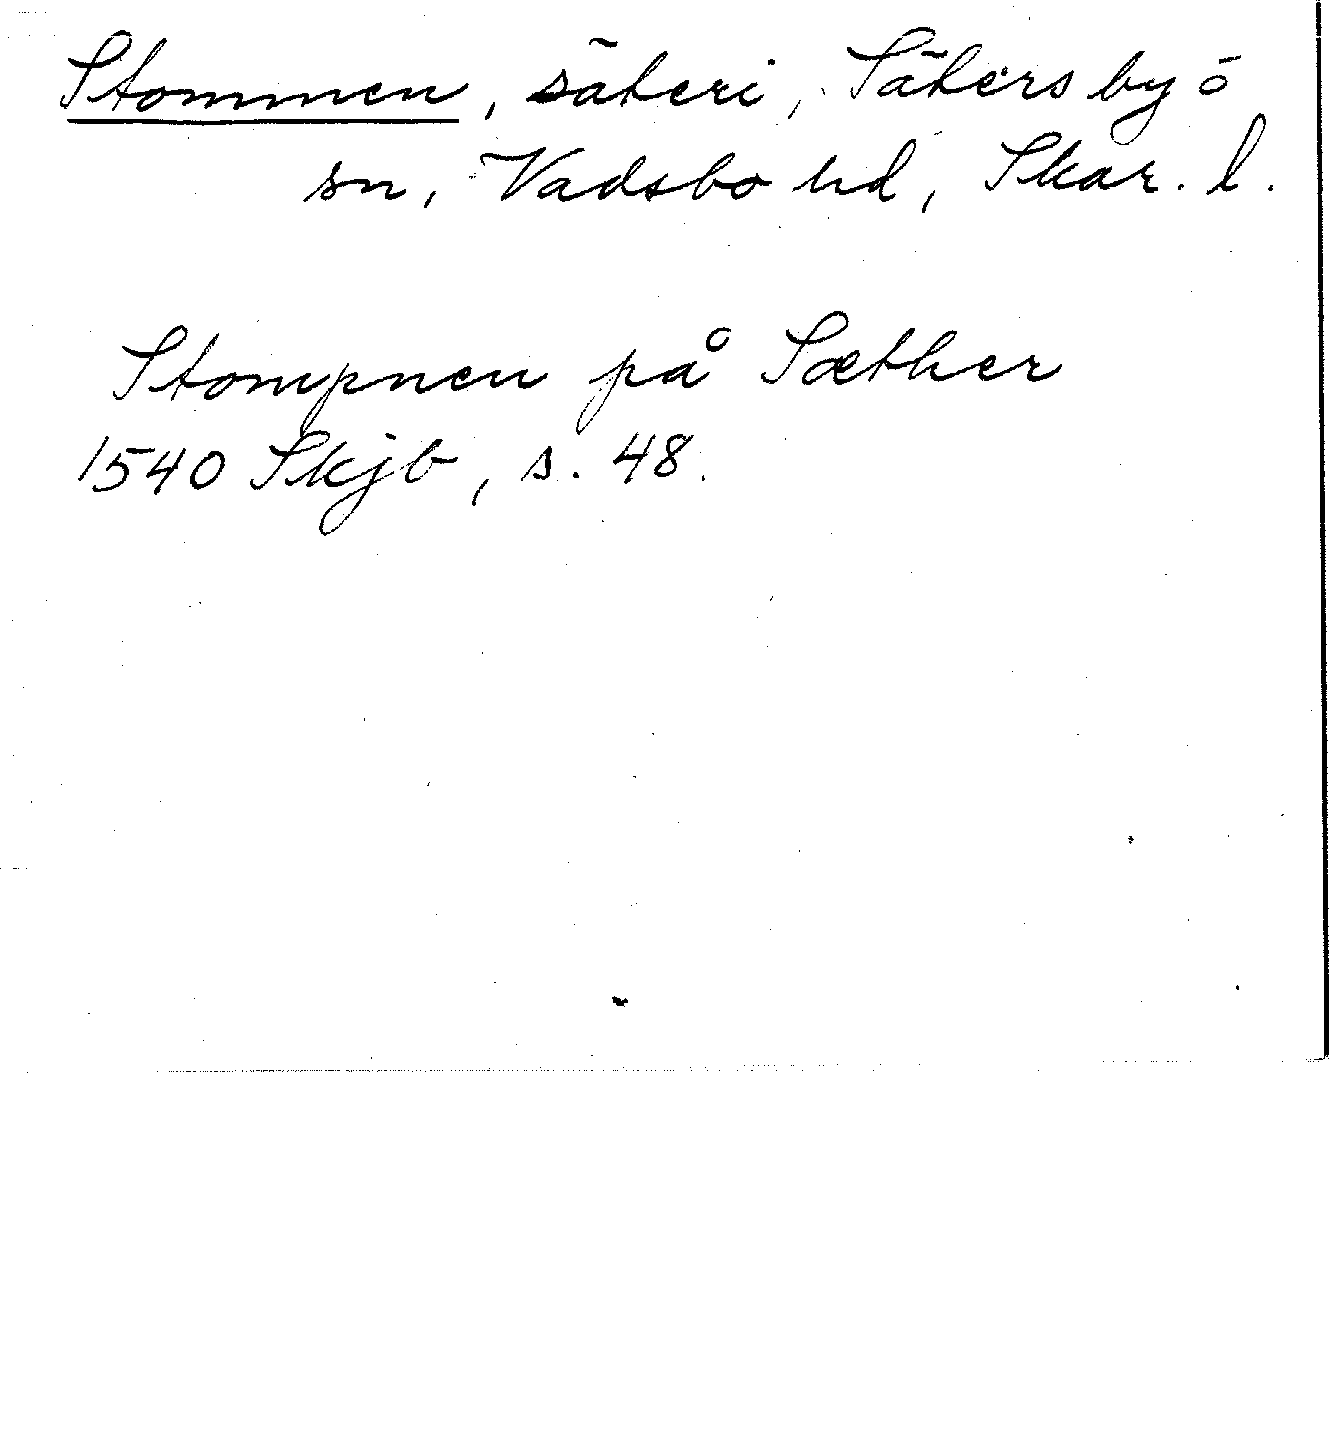 Stommen, säteri, Säters by ö
sn, Vadsbo hd, Skar. l.
Stompnen på Sæther
1540 Skjb, s. 48.